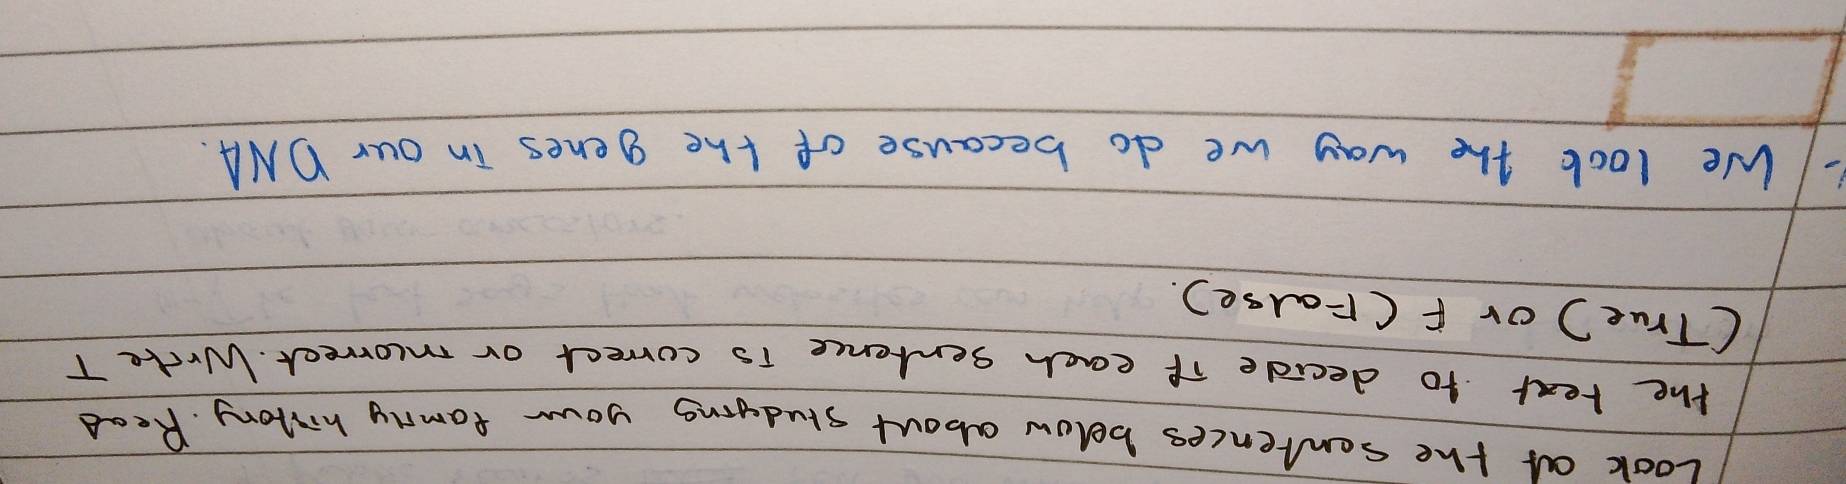 Look at the sentences below about studying your family history. Read
the text to decide if each sentence is correct or incorrect. Write T
(True) or F (False).
We look the way we do because of the genes in our DNA.